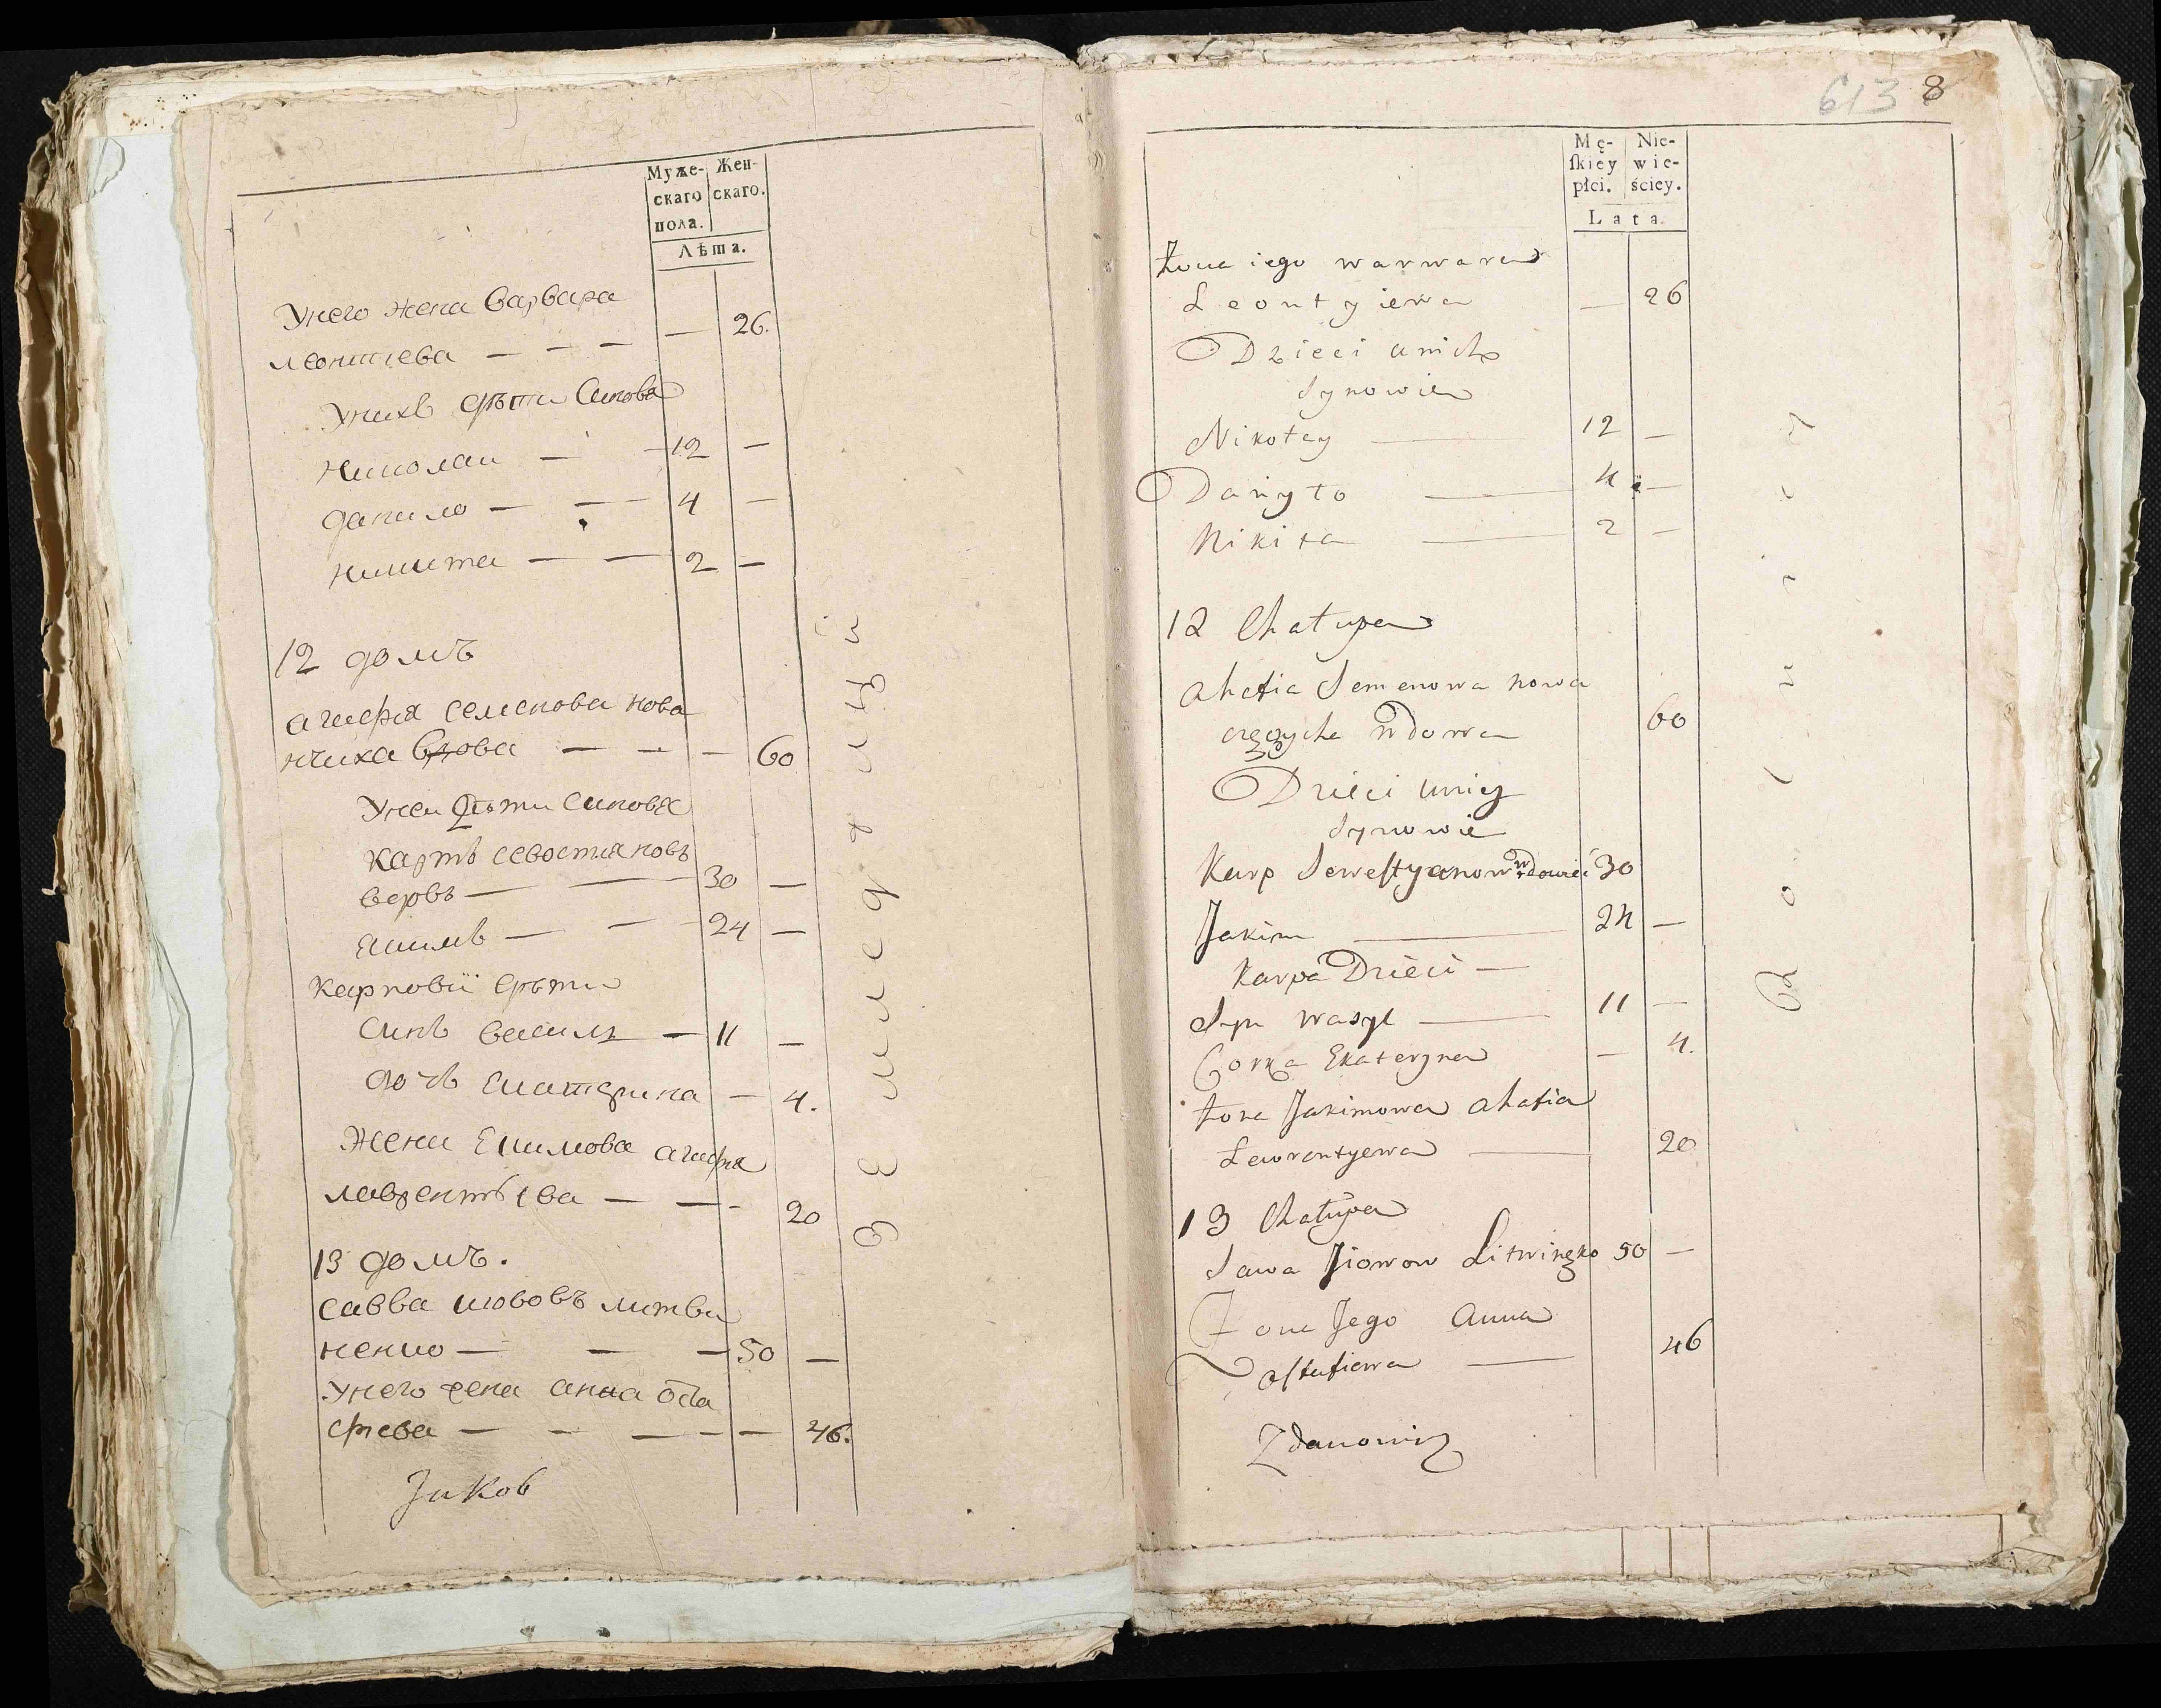 Муже-
скаго
пола.
Жен-
скаго.
Лѣта.
Унего жена варвара
леонтиева — — — — 26.
Унихъ дѣти Синовя
николаи — — 12 —
данило — — 4 —
никита — — 2 —
12 домъ
агафия семенова нова
нчиха вдова — — — 60
Унеи дѣти синовя
карпъ севостияновъ
вдовъ — — 30 —
екимъ — — — 24 —
карповïи дѣти
Синъ василъ — 11 —
дочъ екатерина — 4.
Жена Екимова агафия
лаврентъева — — - 20
13 домъ.
савва иововъ литви
ненко — — — 50 —
Унего жена анна оста
фиева — — — — — 46.
Jаков
613 8
Mę-
ſkiey
płci.
Nie-
wie-
ściey.
Lata.
Żona iego warwara
Leontyiewa — 26
Dzieci unich
Synowie
Nikołay — 12 —
Daniyło — 4 —
Nikita — 2 —
12 Chałupa
ahafia Semenowa nowa
czycha wdowa 60
Dzieci uniey
Synowie
Karp Seweſtyanow wdowiec 30
Jakim — 24 —
Karpa Dzieci —
Syn wasyl — 11 —
Corka Ekateryna — 4.
Żona Jakimowa ahafia
Lawrentyewa — 20
13 Chałupa
Sawa Jiowow Litwinęko 50 —
Żona Jego Anna
oſtafiewa — 46
Zdanowicz